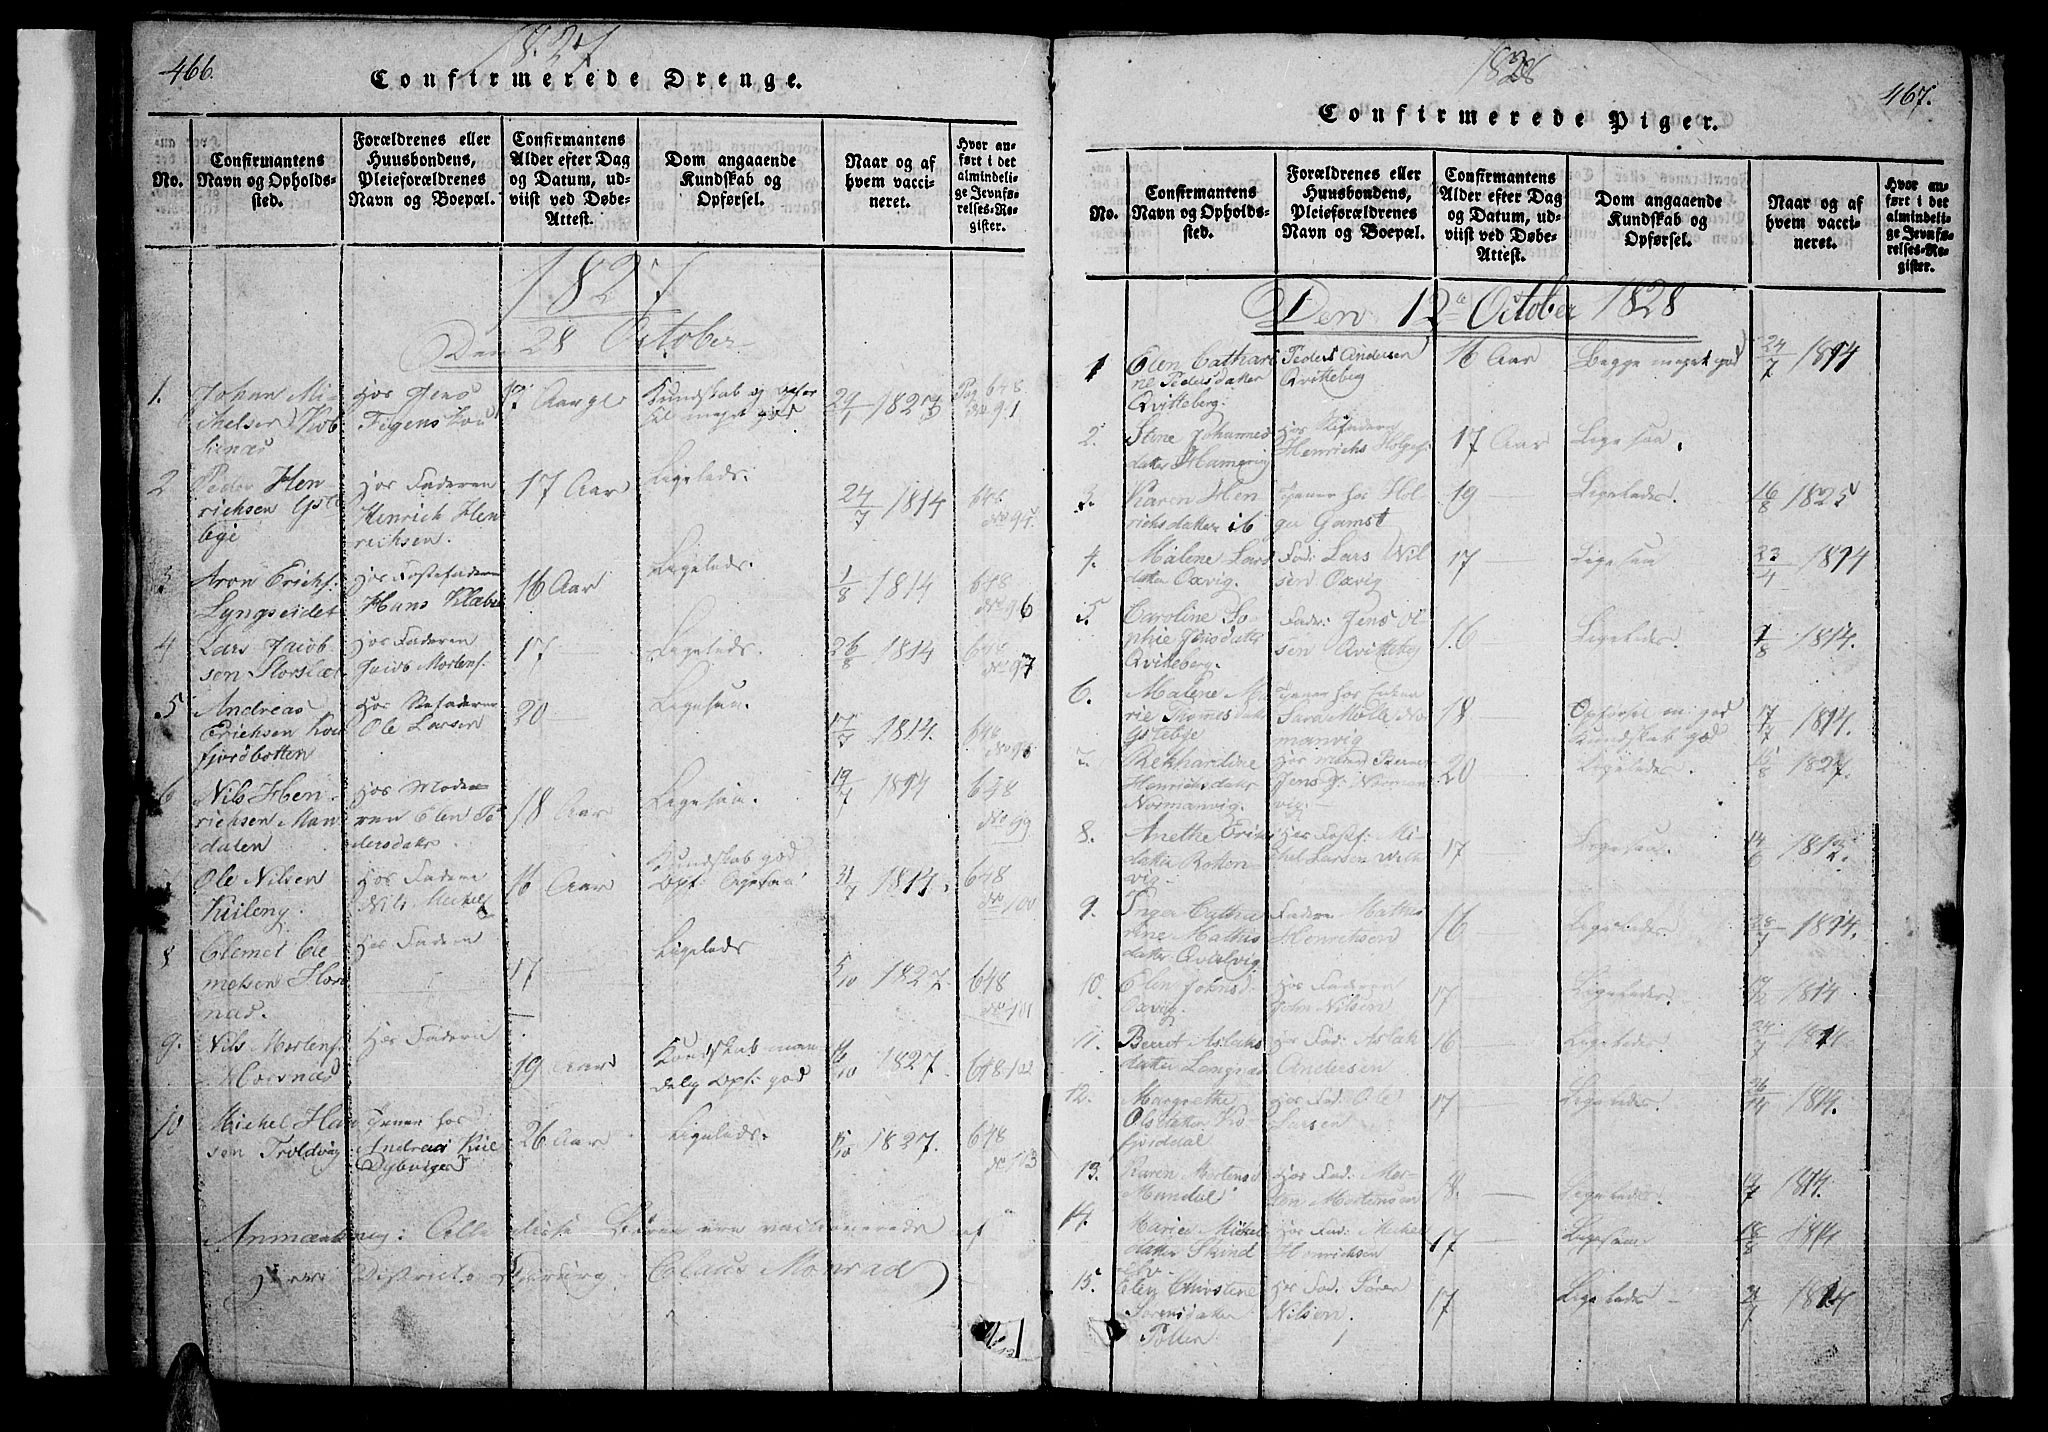 466.
1827
Confirmerede Drenge.
No.
Confirmantens
Navn og Opholds-
sted.
Forældrenes eller
Huusbondens,
Pleieforældrenes
Navn og Boepæl.
Confirmantens
Alder efter Dag
og Datum, ud-
viist ved Døbe-
Attest.
Dom angaaende
Kundskab og
Opførsel.
Naar og af
hvem vacci-
neret.
Hvor an-
ført i det
almindeli-
ge Jevnfø-
relses-Re-
gister.
1827
Den 28 October
1.
Johan Mi-
chelsen
hos Jens
Aar
Kundskab og
meget god
1823
Pag 648
No 91
2
Peder Hen-
richsen
hos Faderen
Henrich Hen
richsen.
17 Aar
Ligeleds.
24/7 1814
648
No 95
3
Aron Erichs.
Lyngseidet
hos Fosterfaderen
Hans Klæboe
16 Aar
Ligeleds.
1/8 1814
648
No 96
4
Lars Jacob
sen Storslæt
hos Faderen
Jacob Mortens.
17 —
Ligeleds.
26/8 1814
648
No 97
5
Andreas
Erichsen Kaa
fjordbotten
hos Stefaderen
Ole Larsen
20 —
Ligesaa.
17/7 1814.
648
No 98
6
Nils Hen-
richsen Man
dalen
hos Mode-
ren Elen Pe
dersdatr.
18 Aar
Ligesaa.
19/7 1814
648
No 99
Ole Nilsen
Kileng
hos Faderen
Nils Mickels
16 Aar
Kundskab god
Opf: Ligesaa
31/7 1814.
648
No 100
8
Clemet Cle
metsen Hors
næs.
hos Faderen
17 —
Ligeleds
5/10 1827.
648
No 101
9.
Nils Mortens.
Horsnæs
hos Faderen
19 Aar
Kundskab man
delig Opf: god
16/10 1827.
648-102
10
Michel Han
sen Troldvig
Tjener hos
Andreas Kiil
Dybvigen
26 Aar
Ligeleds.
15/10 1827.
648
No 103
Anmærkning: Alle disse Børn ere vaccinerede af
Districts Chirurg Claus Monrad
1828
467.
Confirmerede Piger.
No.
Confirmantens
Navn og Opholds-
sted.
Forældrenes eller
Huusbondens,
Pleieforældrenes
Navn og Boepæl.
Confirmantens
Alder efter Dag
og Datum, ud-
viist ved Døbe-
Attest.
Dom angaaende
Kundskab og
Opførsel.
Naar og af
hvem vacci-
neret.
Hvor an-
ført i det
almindeli-
ge Jevnfø-
relses-Re-
gister.
Den 12te October 1828
1
Elen Cathari
ne Pedersdatter
Qvitteberg.
Peder Andersen
Qvitteberg
16 Aar
Begge meget god
24/7 1814
2.
Stine Johannes
datter Hamervig
hos Stefaderen
Henrichs Holges.
17 Aar
Ligesaa.
3.
Karen Hen
richsdatter ib
Tjener hos Hol
ger Gamst
19 —
Ligeledes.
16/8 1825
4.
Malene Lars
datter Oxvig.
Fad: Lars Nil
sen Oxvig
17 —
Ligesaa
1814
5.
Caroline So-
phie Jensdatter
Qvitteberg.
Fader: Jens Ol
sen Qvitteberg
16 —
Ligeledes
1/8 1814.
6.
Malene Ma
rie Thomesdatr
Tjener hos Enken
Sara Molle Nor
manvig
18 —
Opførsel god
Kundskab god
17/7 1814.
7
Rekhardine
Henrichsdatr
Normanvig.
Jens J: Norman
vig.
20 —
Ligeledes.
1827.
8.
Anethe Erics
datter Rotten-
vig.
hos Fostf: Mi-
chel Larsen
17 —
Ligesaa.
14/6 1815.
9.
Inger Catha
rine Mathis
datter
Faderen Mathis
Henrichsen
16 —
Ligeledes.
28/7 1814.
10.
Elen Johns.d
Oxvig
hos Faderen
John Nilsen
17 —
Ligeledes.
1814
11.
Berret Aslaks
datter Langnæs
hos Fad: Aslak
Andersen
16 —
Ligeledes.
24/7 1814
12.
Margrethe
Olsdatter Ka
fjorddal
hos Fad: Ole
Larsen
17 —
Ligeledes.
1814.
13.
Karen Mortens.d
Mandal
hos Fad: Mor-
ten Mortensen
18. —
Ligeledes.
1814.
14.
Maries Mickels
datter Skind
elv
hos Fad: Mickel
Henrichsen
17 —
Ligesaa
18/8 1814
15.
Elen Christine
Sørensdatter
Pollen
hos Fad. Søren
Nilsen.
17 —
Ligeledes —
1814